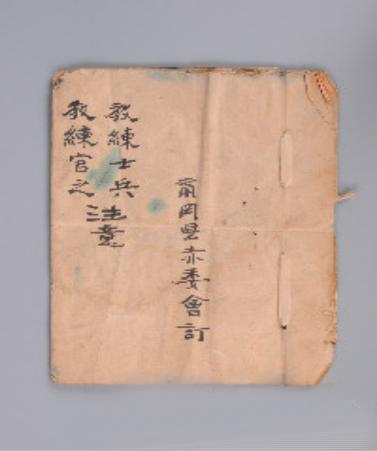 岡县赤委會訂
教練士兵
教練官之
注意